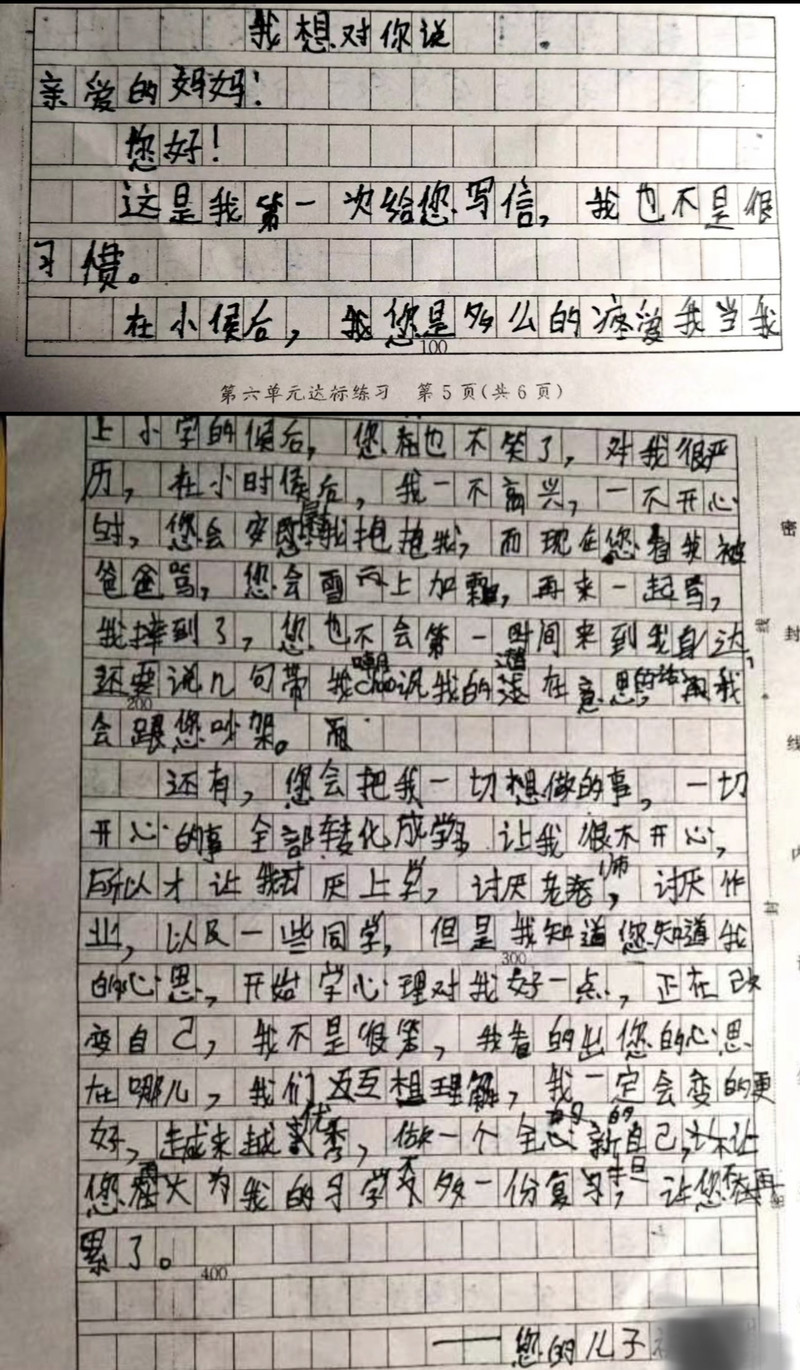 我想对你说
亲爱的妈妈！
您好！
这是我第一次给您写信，我也不是很
习惯。
在小候后，我您是多么的疼爱我当我
100
第六单元达标练习 第5页(共6页)
上小学的候后，您也不笑了，对我很严
历，在小时候后，我一不高兴，一不开心
时，您会安慰我抱抱我，而现在您看我被
爸爸骂，您会雪上加霜，再来一起骂，
我摔到了，您也不会第一时间来到我身边
还要说几句带我的在意思的话，
200
会跟您吵架。
还有，您会把我一切想做的事，一切
开心的事全部转化成学习让我很不开心，
所以才让我讨厌上学，讨厌老师，讨厌作
业，以及一些同学，但是我知道您知道我
300
的心思，开始学心理对我好一点，正在改
变自己，我不是很笨，我看的出您的心思
在哪儿，我们互相理解，我一定会变的更
好，越来越优秀，做一个全新的自己，不让
您为我的习学多一份复习，让您不再
累了。
400
——您的儿子
密
封
线
内
线
封